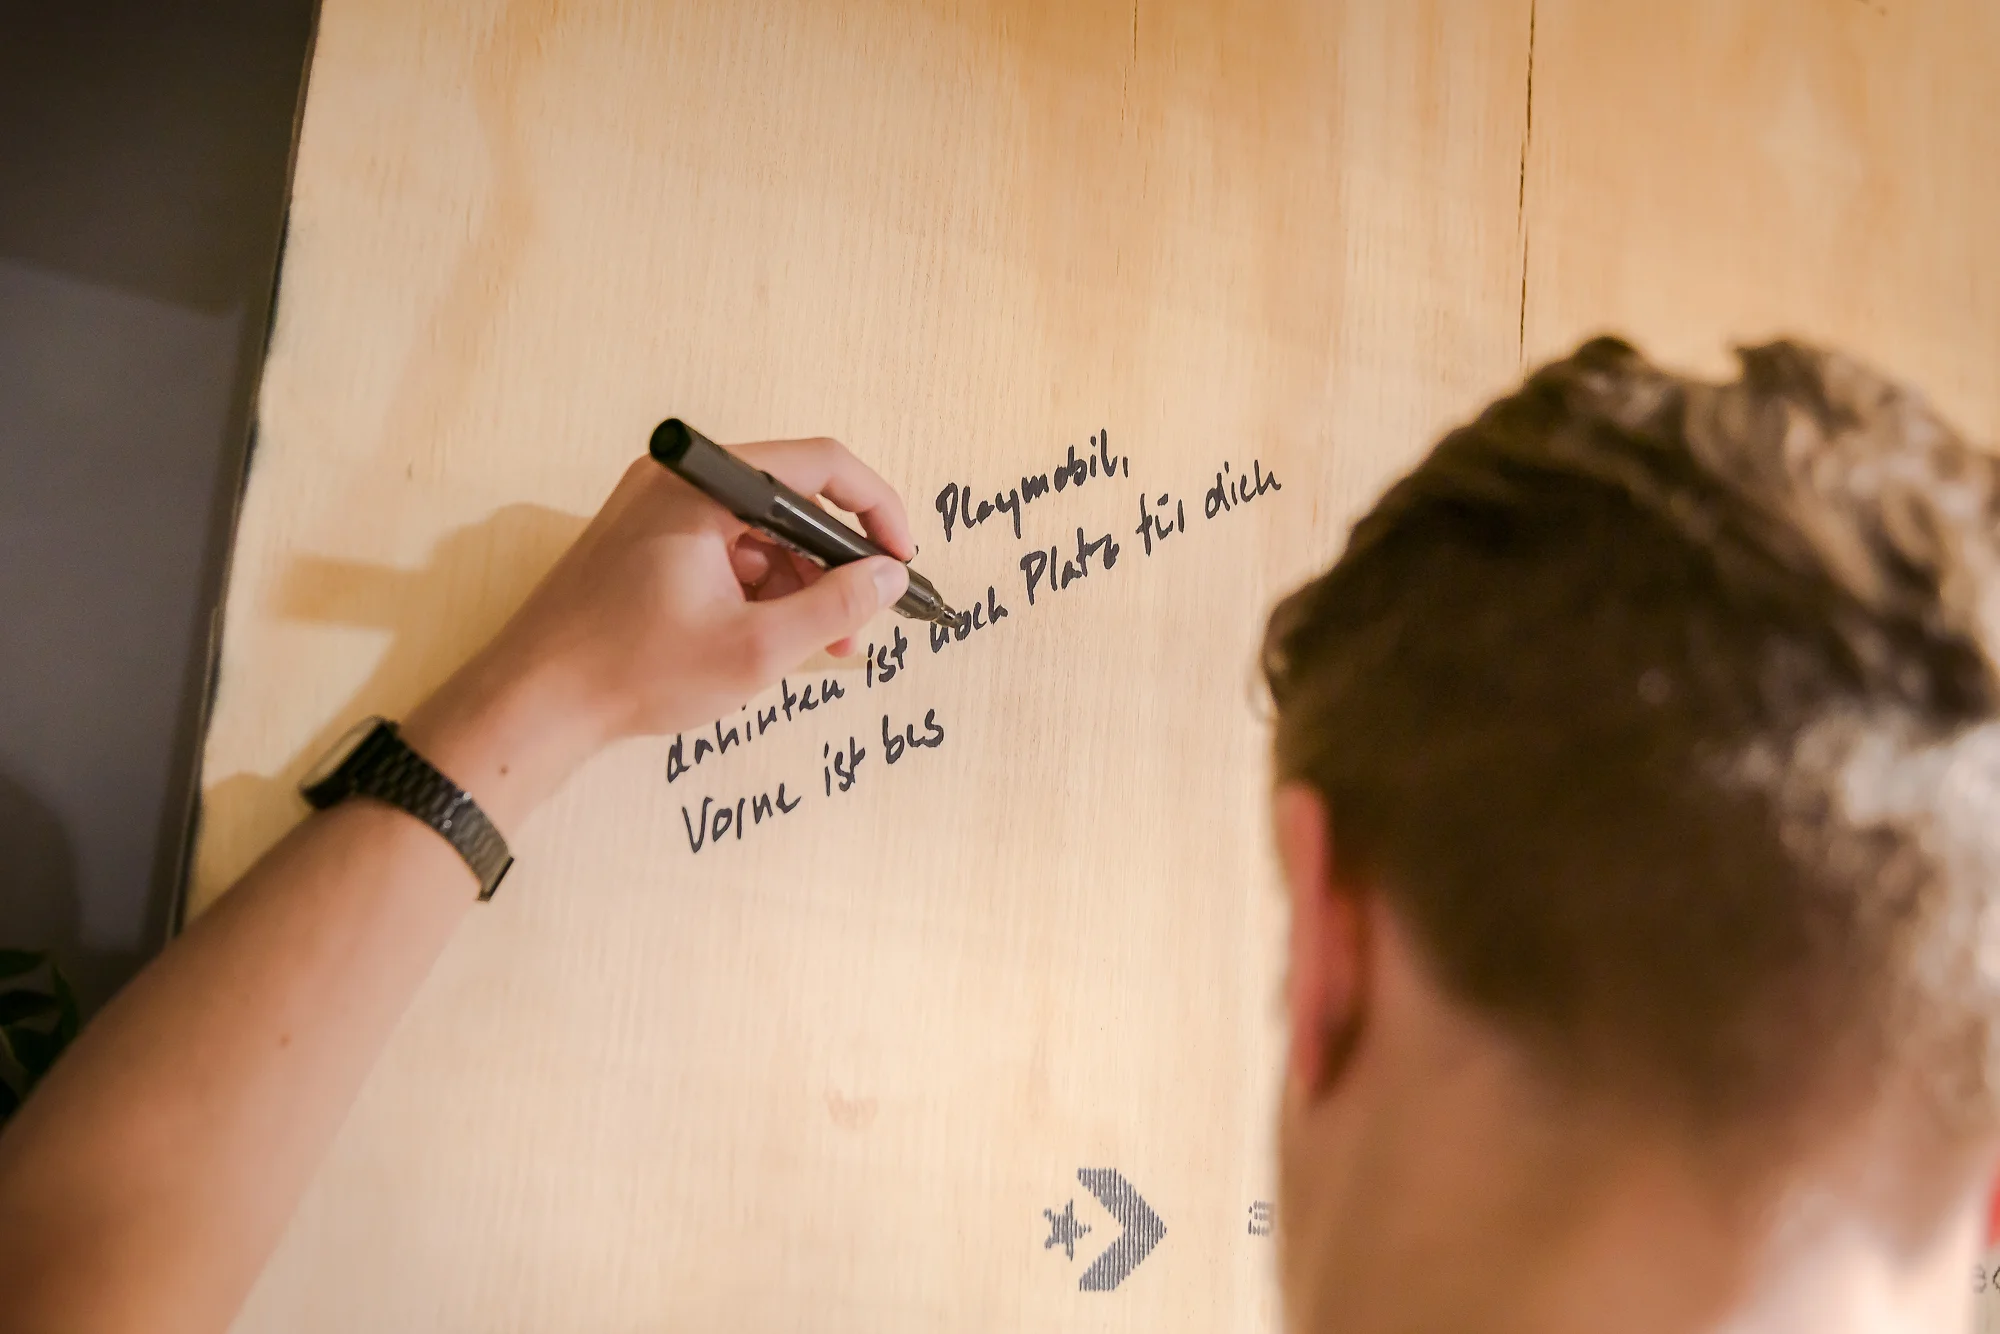 Playmobil,
dahinten ist noch Platz für dich
Vorne ist bes